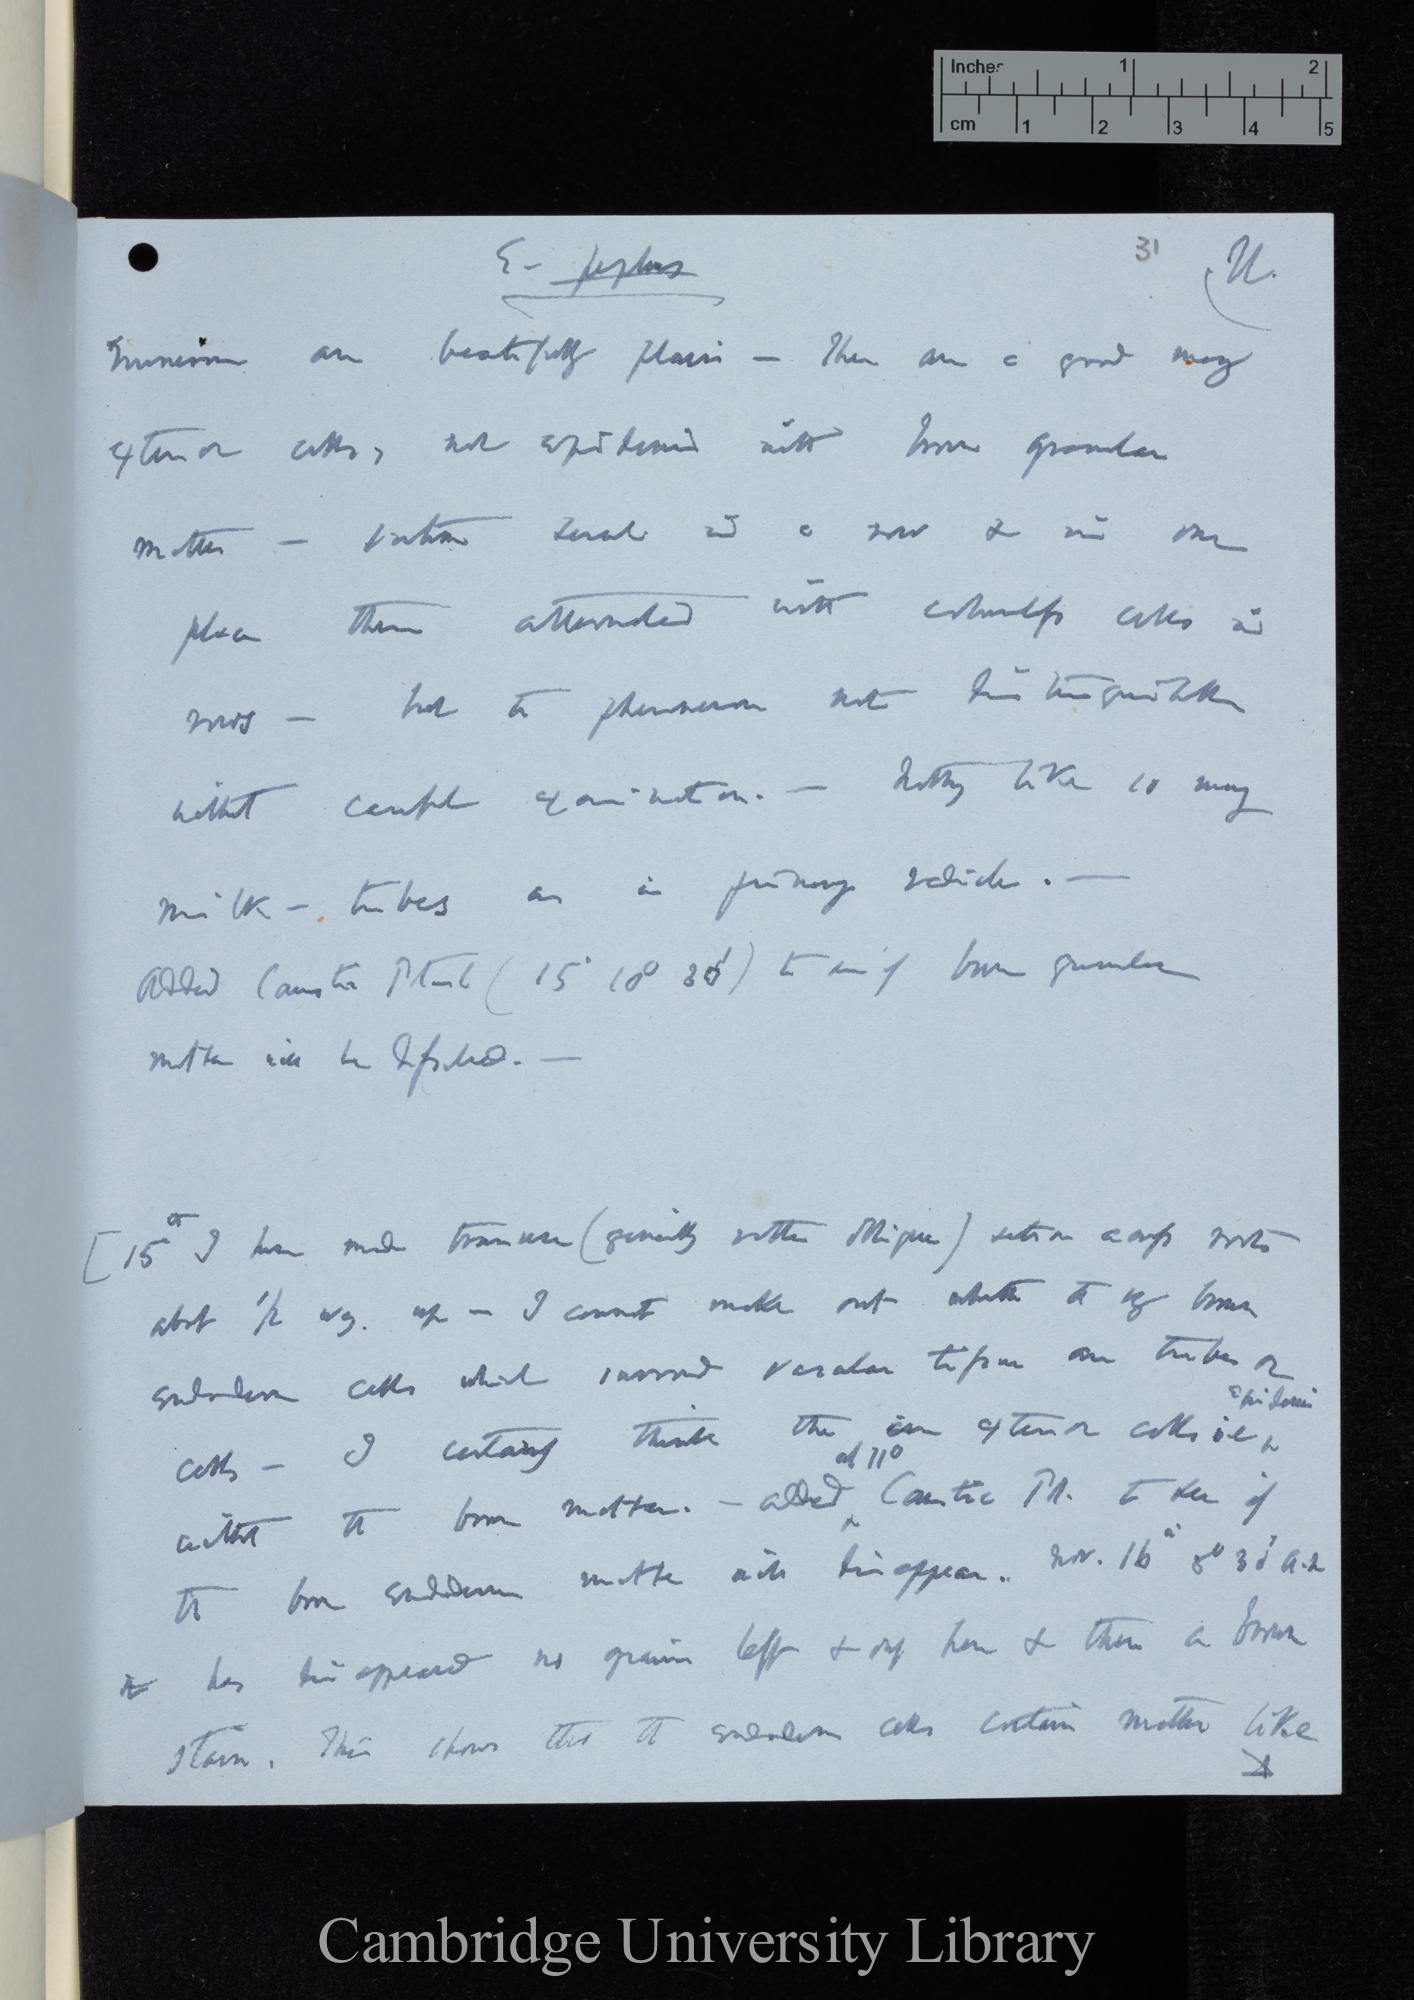 Inches 1 2
cm 1 2 3 4 5
31
E. peplus
are beautifully plain — There are a good many
exterior cells, not epidermis with brown granular
matter — sometimes several in a row & in one
place these alternated with colourless cells in
rows — but the phenomenon not distinguishable
without careful examination. — Nothing like so many
milk-tubes as in primary radicle. —
Added Caustic Potash (15th 10° 30') to see if brown granular
matter will be dissolved. —
[15th I have made transverse (generally rather oblique) section across roots
about 1/2 way up — I cannot make out whether the brown
endoderm cells which surround vascular tissue are tubes or
cells — I certainly think there are exterior cells ie epidermis
without the brown matter. — added at 11° Caustic Pot. to see if
the brown endoderm matter will disappear. Nov. 16th 8° 30' A.M
it has disappeared no grains left & only here & there a brown
stain. This shows that the endoderm cells contain matter like
Cambridge University Library